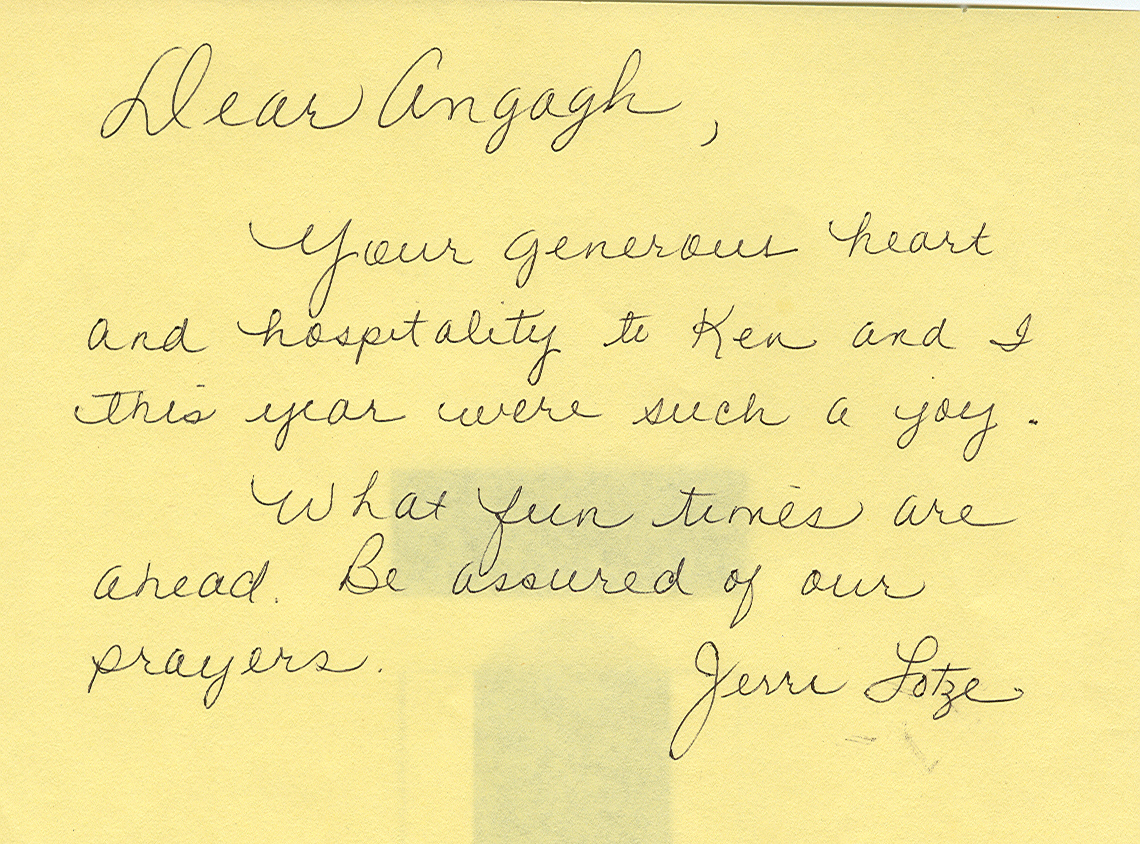 Dear Angagh,
Your generous heart
and hospitality to Ken and I
this year were such a joy.
What fun times are
ahead. Be assured of our
prayers.
Jerri Lotze